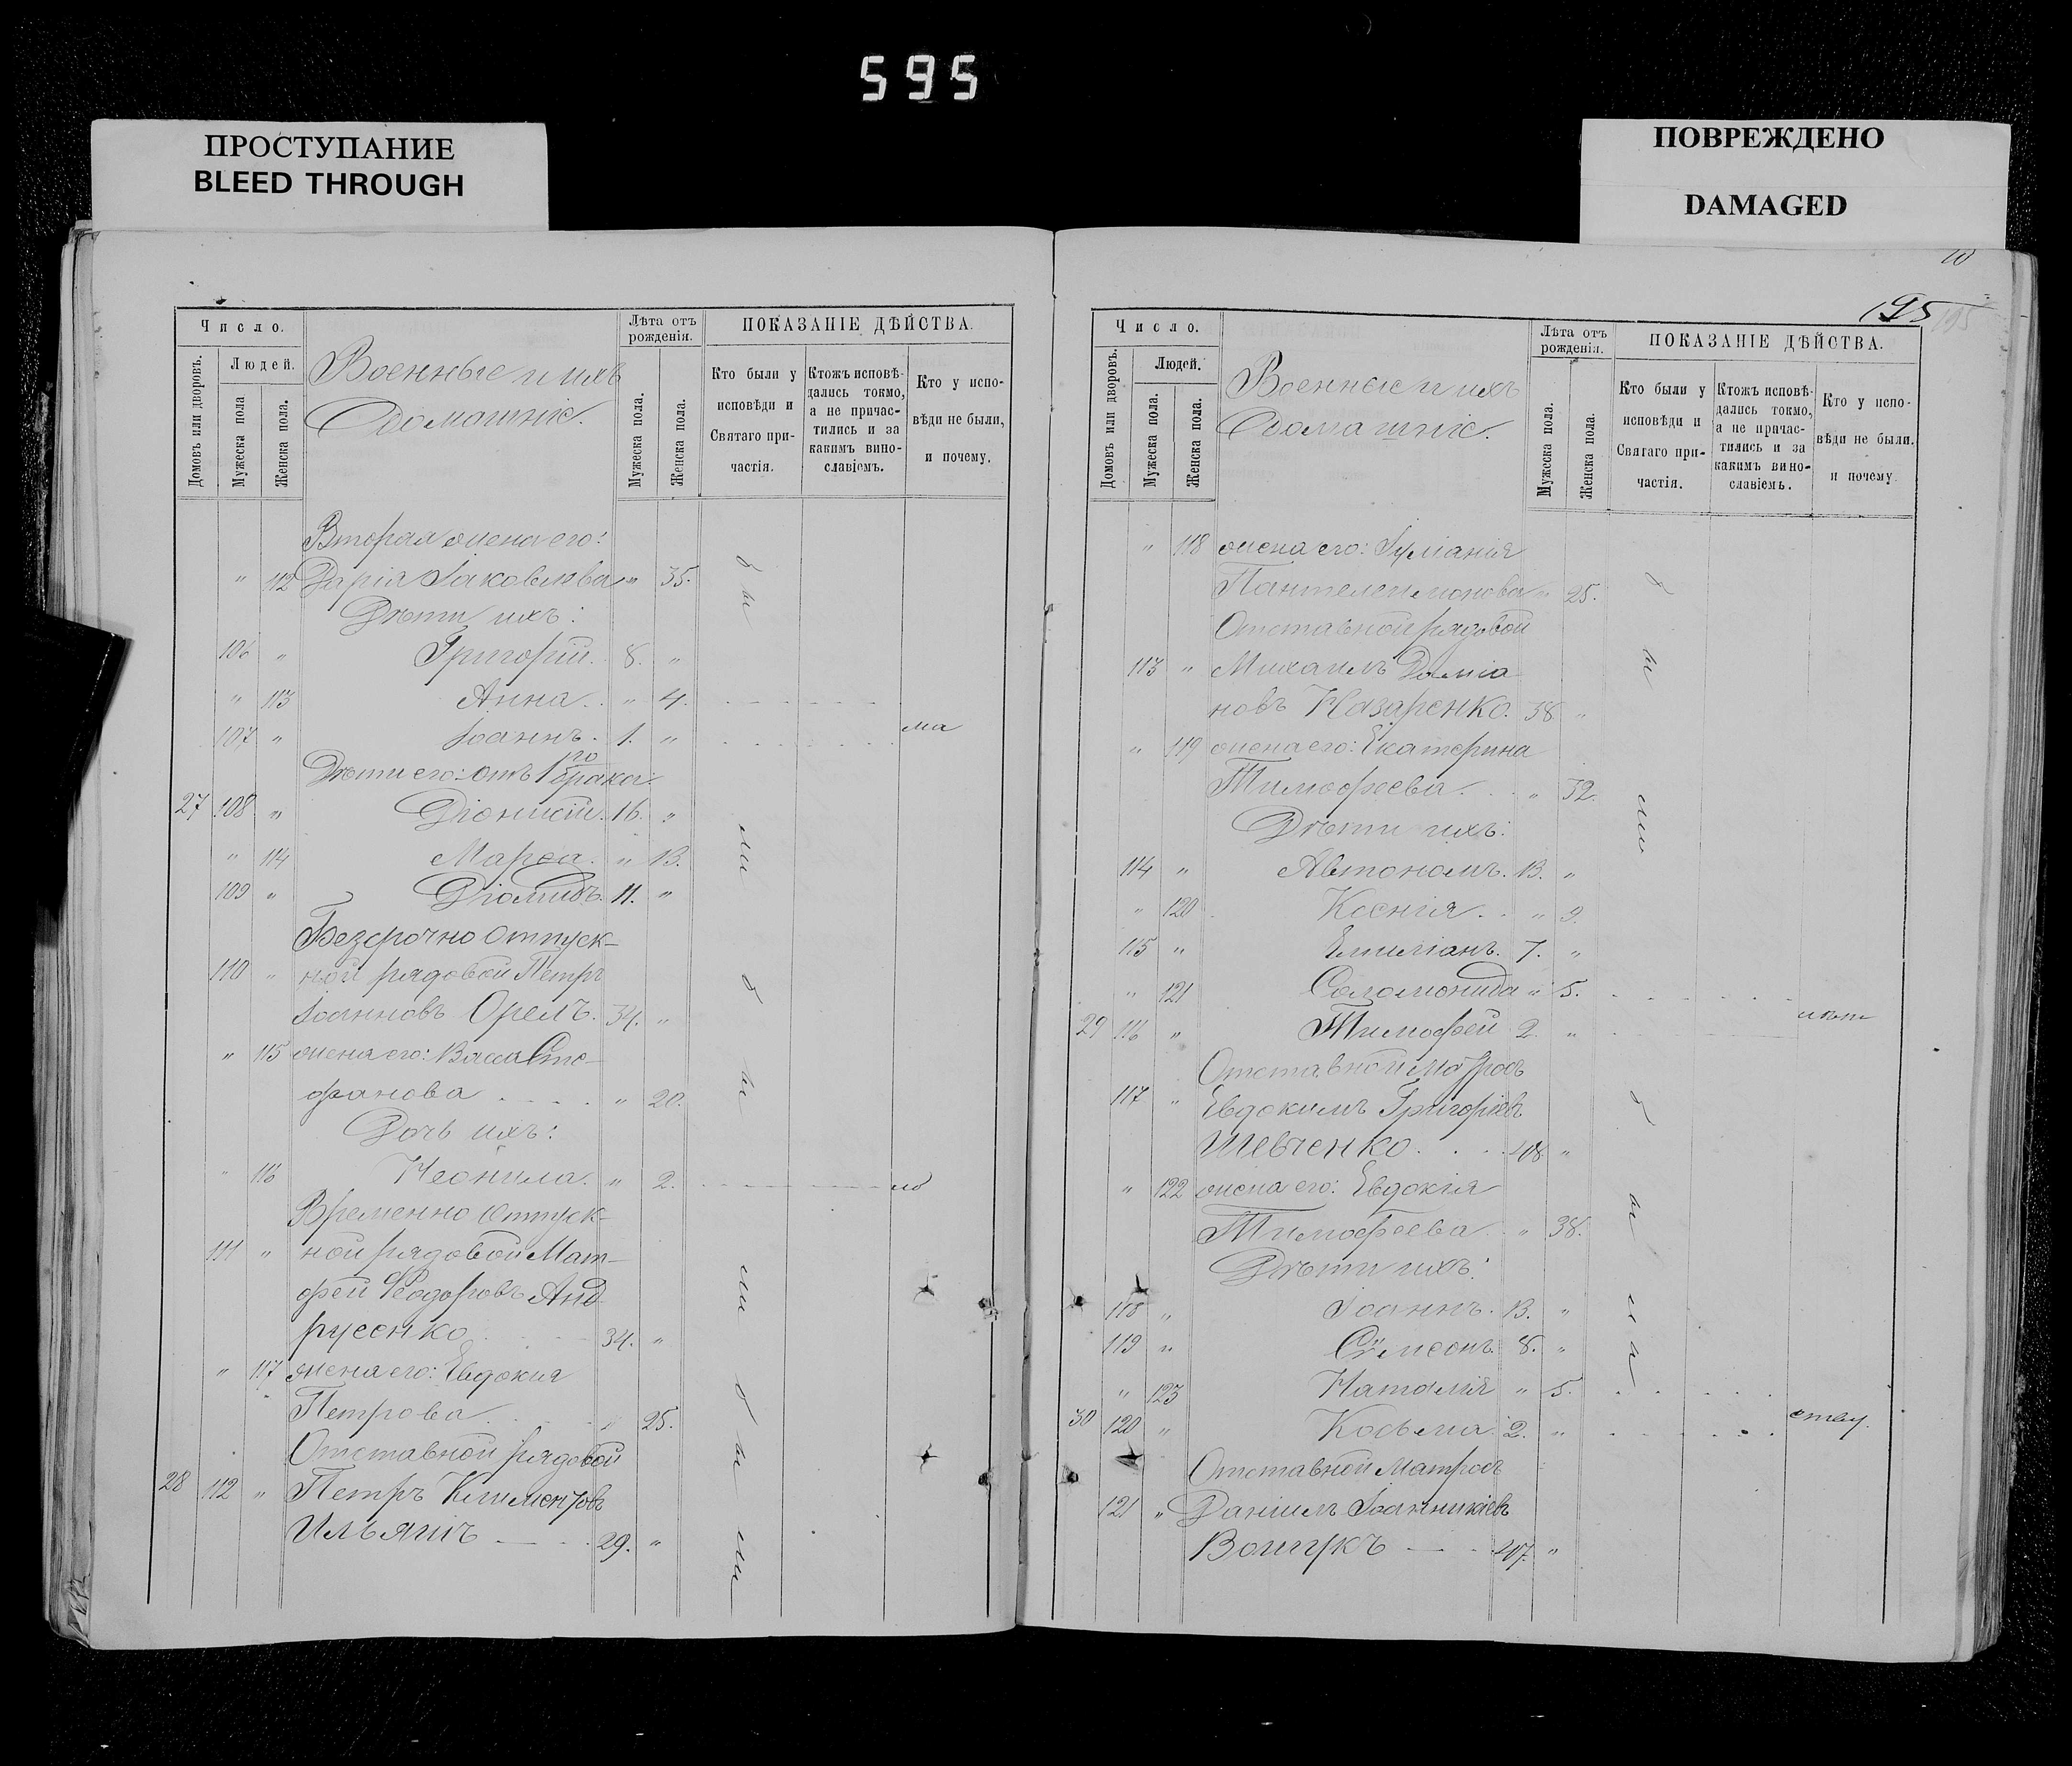 595
ПРОСТУПАНИЕ
BLEED THROUGH
ПОВРЕЖДЕНО
DAMAGED
Число.
Домовъ или дворовъ.
Людей.
Мужеска пола
Женска пола.
Военные и ихъ
домашніе.
Лѣта отъ рожденія.
Мужеска пола.
Женска пола.
ПОКАЗАНІЕ ДѢЙСТВА.
Кто были у исповѣди и Святаго причастія.
Ктожъ исповѣдались токмо, а не причастились и за какимъ винословіемъ.
Кто у исповѣди не были, и почему.
Вторая жена его:
" 112 Дарія Іаковлева " 35.
Дѣти ихъ:
106 " Григорій. 8. "
" 113 Анна. " 4.
107 " Іоаннъ. 1. " ма
Дѣти его: отъ 1го брака:
27 108 " Діонисій. 16. "
" 114 Марѳа. " 13.
109 " Діомидъ. 11. "
Безсрочно отпуск-
110 " ной рядовой Петръ
Іоанновъ Орелъ. 34. "
" 115 жена его: Васса Сте-
фанова " 20.
Дочь ихъ:
" 116 Неонила. " 2. ло
Временно отпуск-
111 " ной рядовой Мат-
фей Ѳеодоровъ Анд-
русенко 34. "
" 117 жена его: Евдокия
Петрова " 25.
Отставной рядовой
28 112 " Петръ Климентовъ
Ильяшъ 29. "
бы
ли
бы
ли
бы
ли
10
195 195
Число.
Домовъ или дворовъ.
Людей.
Мужеска пола.
Женска пола.
Военные и ихъ
домашніе.
Лѣта отъ рожденія.
Мужеска пола.
Женска пола.
ПОКАЗАНІЕ ДѢЙСТВА.
Кто были у исповѣди и Святаго причастія.
Ктожъ исповѣдались токмо, а не причастились и за какимъ винославіемъ.
Кто у исповѣди не были. и почему.
" 118 жена его: Іуліанія
Пантелеимонова " 25.
Отставной рядовой
113 " Михаилъ Даміа-
новъ Назаренко. 38 "
" 119 жена его: Екатерина
Тимофеева. " 32.
Дѣти ихъ:
114 " Автономъ. 13. "
" 120 Ксенія. " 9.
115 " Емиліанъ. 7. "
" 121 Соломонида " 5.
29 116 " Тимофей 2. " лѣт
Отставной матросъ
117 " Евдокимъ Григоріевъ
Шевченко. 48 "
" 122 жена его: Евдокія
Тимофеева " 38.
Дѣти ихъ:
118 " Іоаннъ. 13. "
119 " Сѵмеонъ. 8. "
" 123 Наталія " 5.
30 120 " Косьма. 2. " ству.
Отставной Матросъ
121 " Даніилъ Іоанникіевъ
47. "
бы
ли
бы
ли